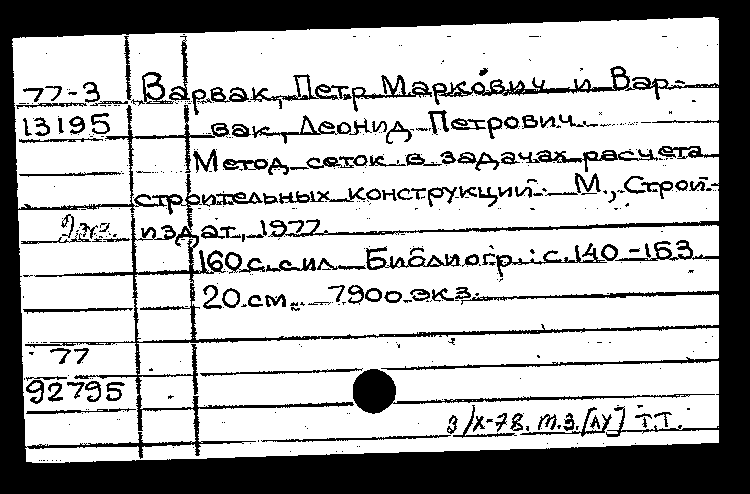 77-3 Варвак, Петр Маркович и Вар-
13195 вак, Леонид Петрович.
Метод сеток в задачах расчета
строительных конструкций. М., Строй-
2экз. издат, 1977.
160 с. с ил. Библиогр.: с. 140-153.
20 см. 7900 экз.
77
92795
3/X-78. т.з. [ЛУ] Т.Т.